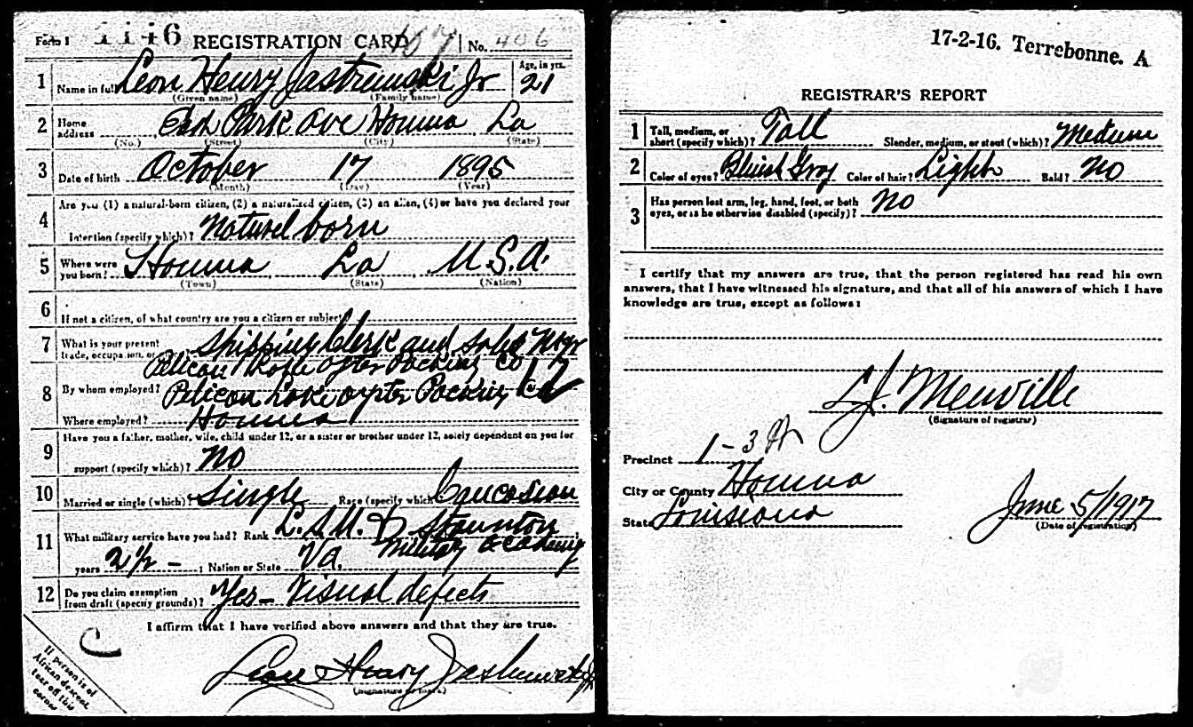 Form 1 1146 REGISTRATION CARD 107 No. 406
1 Name in full Leon Henry Jastremski Jr Age, in yrs. 21
(Given name) (Family name)
2 Home address Park Ave Houma La
(No.) (Street) (City) (State)
3 Date of birth October 17 1895
(Month) (Day) (Year)
4 Are you (1) a natural-born citizen, (2) a naturalized citizen, (3) an alien, (4) or have you declared your
intention (specify which)? Natural born
5 Where were you born? Houma La U.S.A.
(Town) (State) (Nation)
6 If not a citizen, of what country are you a citizen or subject?
7 What is your present trade, occupation, or Shipping Clerk and Sales Mgr
Pelican Lake Oyster Packing Co 17
8 By whom employed? Pelican Lake oyster Packing Co
Where employed? Houma
9 Have you a father, mother, wife, child under 12, or a sister or brother under 12, solely dependent on you for
support (specify which)? No
10 Married or single (which)? Single Race (specify which)? Caucasian
11 What military service have you had? Rank L.S.U. & Staunton
Military Academy
years 2 1/2 - ; Nation or State Va.
12 Do you claim exemption from draft (specify grounds)? Yes - Visual defects
I affirm that I have verified above answers and that they are true.
C
Leon Henry Jastremski Jr
(Signature or mark)
If person is of
African descent
tear off this
corner
17-2-16. Terrebonne. A
REGISTRAR'S REPORT
1 Tall, medium, or short (specify which)? Tall Slender, medium, or stout (which)? Medium
2 Color of eyes? Bluish Gray Color of hair? Light Bald? No
3 Has person lost arm, leg, hand, foot, or both
eyes, or is he otherwise disabled (specify)? No
I certify that my answers are true, that the person registered has read his own
answers, that I have witnessed his signature, and that all of his answers of which I have
knowledge are true, except as follows:
Menville
(Signature of registrar)
Precinct 1-3
City or County Houma
State Louisiana
June 5/1917
(Date of registration)